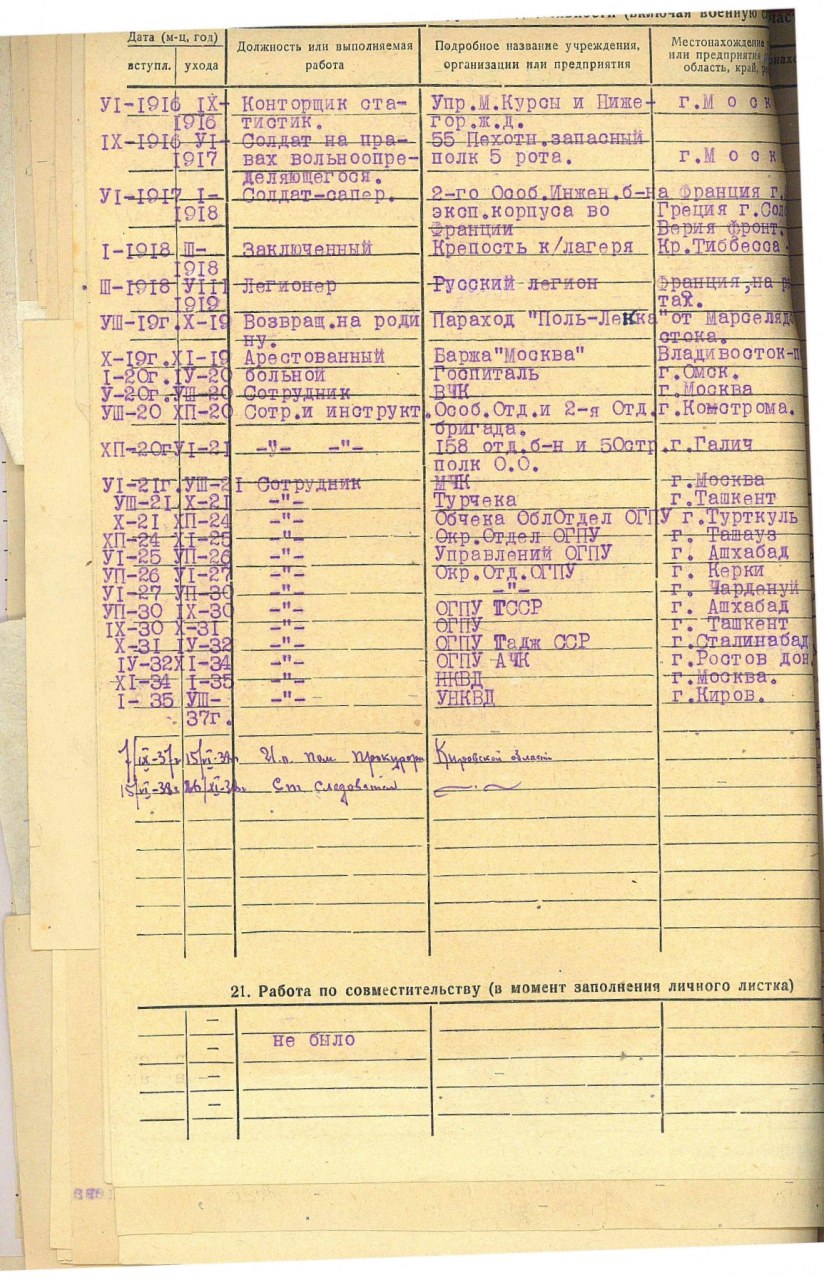 (включая военную
Дата (м-ц, год)
вступл. ухода
Должность или выполняемая
работа
Подробное название учреждения,
организации или предприятия
Местонахождение
или предприятия
область, край,
УI-1916 IX- Конторщик ста- Упр.М.Курсы и Ниже- г.М о с к
1916 тистик. гор.ж.д.
IX-1916 УI- Солдат на пра- 55 Пехотн.запасный
1917 вах вольноопре- полк 5 рота. г.М о с к
деляющегося.
УI-1917 I- Солдат-сапер. 2-го Особ.Инжен.б-на Франция г.
1918 эксп.корпуса во Греция г.Сол
Франции Верия фронт.
I-1918 Ш- Заключенный Крепость к/лагеря Кр.Тиббесса
1918
Ш-1918 УIII Легионер Русский легион Франция,на
1919 тах.
УШ-19г.X-19 Возвращ.на роди Параход "Поль-Лекка" от Марселя
ну. стока.
X-19г.XI-19 Арестованный Баржа"Москва" Владивосток-
I-20г.IУ-20 больной Госпиталь г.Омск.
У-20г.УШ-20 Сотрудник ВЧК г.Москва
УШ-20 ХП-20 Сотр.и инструкт. Особ.Отд.и 2-я Отд. г.Комстрома.
бригада.
ХП-20гУI-21 -"- -"- 158 отд.б-н и 50стр. г.Галич
полк О.О.
УI-21г.УШ-21 Сотрудник МЧК г.Москва
УШ-21 X-21 -"- Турчека г.Ташкент
X-21 ХП-24 -"- Обчека ОблОтдел ОГПУ г.Турткуль
ХП-24 XI-25 -"- Окр.Отдел ОГПУ г. Ташауз
УI-25 УП-26 -"- Управлений ОГПУ г. Ашхабад
УП-26 УI-27 -"- Окр.Отд.ОГПУ г. Керки
УI-27 УП-30 -"- -"- г. Чарденуй
УП-30 IX-30 -"- ОГПУ ТССР г. Ашхабад
IX-30 X-31 -"- ОГПУ г. Ташкент
X-31 IУ-32 -"- ОГПУ Тадж ССР г.Сталинабад
IУ-32XI-34 -"- ОГПУ АЧК г.Ростов дон.
XI-34 I-35 -"- НКВД г.Москва.
I- 35 УШ- -"- УНКВД г.Киров.
37г.
1/IX-37г 15/VI-38г И.п. пом прокурора Кировской области
15/VI-38г 26/XI-38г Ст следователь
21. Работа по совместительству (в момент заполнения личного листка)
—
— не было
—
—